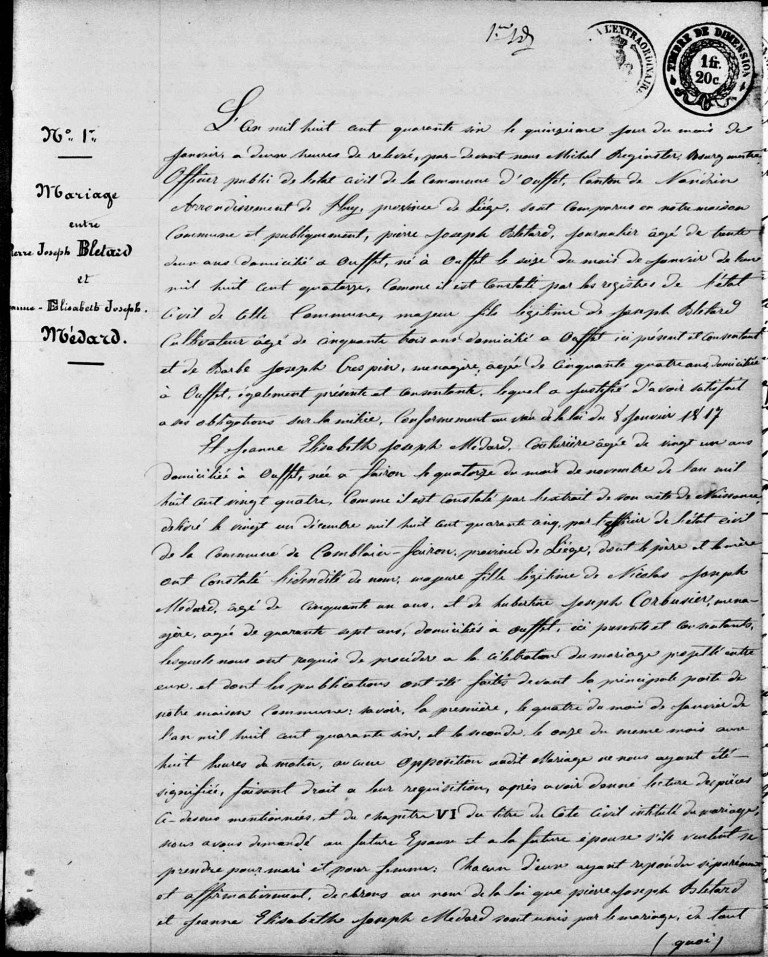 1er Rôle
A L'EXTRAORDINAIRE
TIMBRE DE DIMENSION
1 fr.
20c.
No. 1er
Mariage
entre
Pierre Joseph Bletard
et
Jeanne-Elisabeth Joseph.
Médard.
L'an mil huit cent quarante six le quinzieme jour du mois de
Janvier, a deux heures de relevé, par-devant nous Michel Reginster, Bourgmestre
Officier public de l'etat civil de la Commune d'Ouffet, Canton de Nandrin
Arrondissement de Huy, province de Liége, sont comparus en notre maison
Commune et publiquement, pierre Joseph Bletard, Journalier âgé de trente
deux ans domicilié a Ouffet, né à Ouffet le seize du mois de Janvier de l'an
mil huit cent quatorze, comme il est constaté par les registres de l'état
civil de cette Commune, majeur fils legitime de Joseph Bletard
Cultivateur âgé de cinquante trois ans domicilié a Ouffet ici présent et consentant
et de Barbe Joseph Crespin, menagère, agée de Cinquante quatre ans, domiciliée
à Ouffet, également présente et consentante, lequel a justifié d'avoir satisfait
a ses obligations sur la milice, Conformement au vœu de la loi du 8 Janvier 1817
Et Jeanne Elisabeth Joseph Medard, Couturière agée de vingt un ans
domiciliée à Ouffet, née a fairon le quatorze du mois de novembre de l'an mil
huit cent vingt quatre, Comme il est constaté par l'extrait de son acte de Naissance,
delivré le vingt un décembre mil huit cent quarante cinq, par l'officier de l'état civil
de la Commune de Comblain-fairon, province de Liége, dont le père et la mère
ont Constaté l'identité de nom, majeure fille legitime de Nicolas Joseph
Medard, agé de cinquante un ans, et de hubertine Joseph Corbusier, mena-
gère, agée de quarante sept ans, domiciliés à Ouffet, ici presents et consentants,
lesquels nous ont requis de procéder a la célébration du mariage projetté entre
eux, et dont les publications ont été faites devant la principale porte de
notre maison Commune; savoir, la première, le quatre du mois de Janvier de
l'an mil huit cent quarante six, et la seconde le onze du meme mois aux
huit heures du matin, aucune opposition audit Mariage ne nous ayant été
signifiée, faisant droit a leur requisition, après avoir donné lecture des pièces
ci-dessus mentionnées, et du chapitre VI du titre du Code Civil intitulé du mariage,
nous avons demandé au future Epoux et a la future épouse s'ils veulent se
prendre pour mari et pour femme: Chacun d'eux ayant repondu séparément
et affirmativement, declarons au nom de la loi que pierre Joseph Bletard
et Jeanne Elisabeth Joseph Medard sont unis par le mariage, de tout
(quoi)